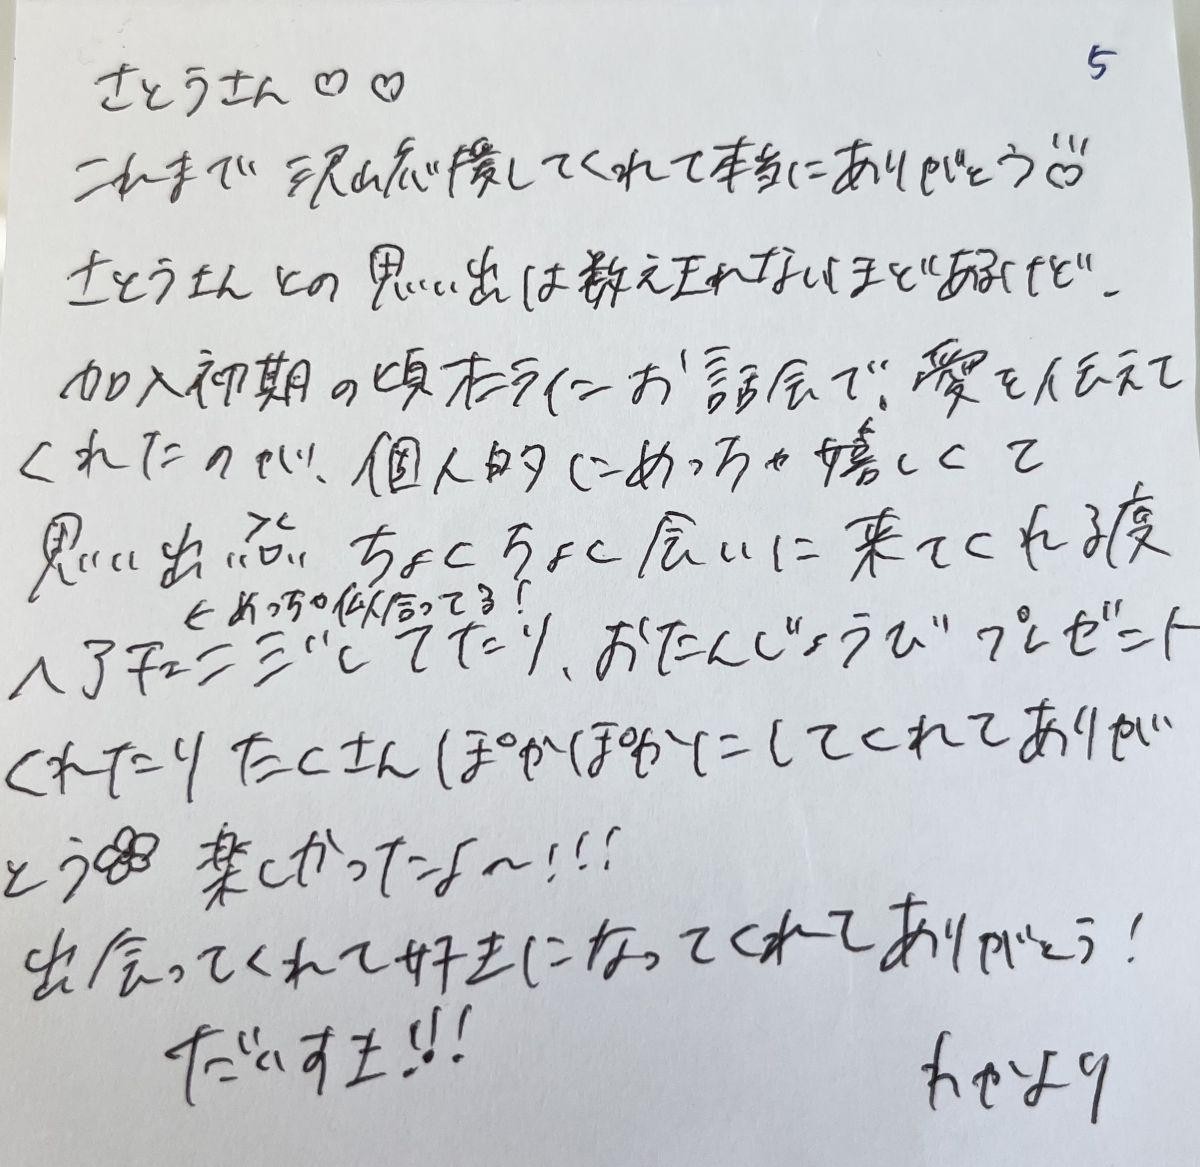 5
さとうさん♡♡
これまで沢山応援してくれて本当にありがとう
さとうさんとの思い出は数えきれないほどあるけど、
加入初期の頃オンラインお話会で、愛を伝えて
くれたのが、個人的にめっちゃ嬉しくて
思い出 ちょくちょく会いに来てくれる度
←めっちゃ似合ってる!
ヘアチェンジしてたり、おたんじょうびプレゼント
くれたりたくさんぽかぽかにしてくれてありが
とう 楽しかったよ〜!!!
出会ってくれて好きになってくれてありがとう!
だいすき!!!
わかより